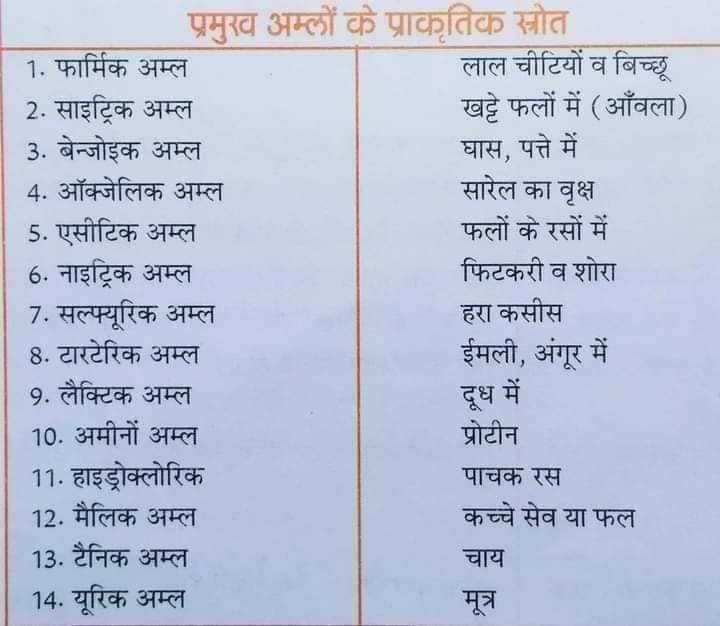 प्रमुख अम्लों के प्राकृतिक स्रोत
1. फार्मिक अम्ल लाल चीटियों व बिच्छू
2. साइट्रिक अम्ल खट्टे फलों में (आँवला)
3. बेन्जोइक अम्ल घास, पत्ते में
4. ऑक्जेलिक अम्ल सारेल का वृक्ष
5. एसीटिक अम्ल फलों के रसों में
6. नाइट्रिक अम्ल फिटकरी व शोरा
7. सल्फ्यूरिक अम्ल हरा कसीस
8. टारटेरिक अम्ल ईमली, अंगूर में
9. लैक्टिक अम्ल दूध में
10. अमीनों अम्ल प्रोटीन
11. हाइड्रोक्लोरिक पाचक रस
12. मैलिक अम्ल कच्चे सेव या फल
13. टैनिक अम्ल चाय
14. यूरिक अम्ल मूत्र